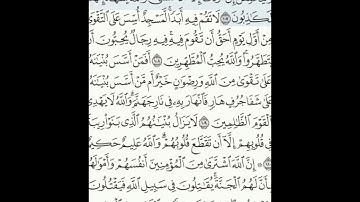 لَكَٰذِبُونَ ۝١٠٧ لَا تَقُمْ فِيهِ أَبَدًا ۚ لَّمَسْجِدٌ أُسِّسَ عَلَى ٱلتَّقْوَىٰ
مِنْ أَوَّلِ يَوْمٍ أَحَقُّ أَن تَقُومَ فِيهِ ۚ فِيهِ رِجَالٌ يُحِبُّونَ
يَتَطَهَّرُوا۟ ۚ وَٱللَّهُ يُحِبُّ ٱلْمُطَّهِّرِينَ ۝١٠٨ أَفَمَنْ أَسَّسَ بُنْيَٰنَهُۥ
عَلَىٰ تَقْوَىٰ مِنَ ٱللَّهِ وَرِضْوَٰنٍ خَيْرٌ أَم مَّنْ أَسَّسَ بُنْيَٰنَهُۥ
عَلَىٰ شَفَا جُرُفٍ هَارٍ فَٱنْهَارَ بِهِۦ فِى نَارِ جَهَنَّمَ ۗ وَٱللَّهُ لَا يَهْدِى
ٱلْقَوْمَ ٱلظَّٰلِمِينَ ۝١٠٩ لَا يَزَالُ بُنْيَٰنُهُمُ ٱلَّذِى بَنَوْا۟ رِيبَةً
فِى قُلُوبِهِمْ إِلَّآ أَن تَقَطَّعَ قُلُوبُهُمْ ۗ وَٱللَّهُ عَلِيمٌ حَكِيمٌ
۝١١٠ إِنَّ ٱللَّهَ ٱشْتَرَىٰ مِنَ ٱلْمُؤْمِنِينَ أَنفُسَهُمْ وَأَمْوَٰلَهُم
بِأَنَّ لَهُمُ ٱلْجَنَّةَ ۚ يُقَٰتِلُونَ فِى سَبِيلِ ٱللَّهِ فَيَقْتُلُونَ